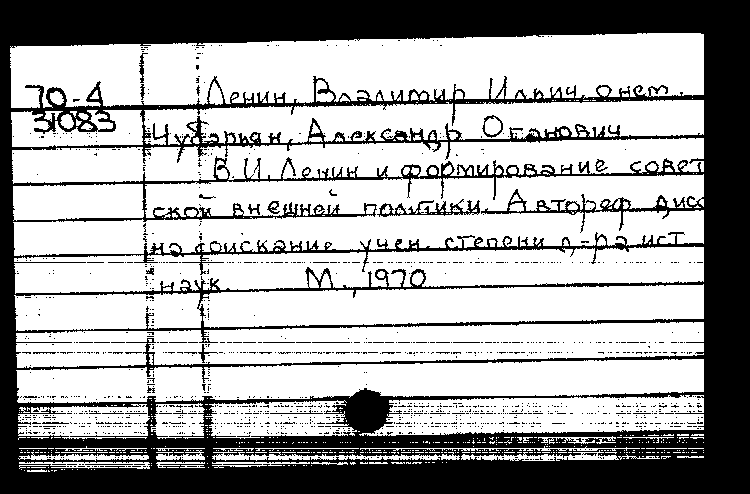 70-4
31083
Ленин, Владимир Ильич, о нем.
Чубарьян, Александр Оганович
В.И. Ленин и формирование совет
ской внешней политики. Автореф. дисс
на соискание учен. степени д-ра ист
наук. М., 1970